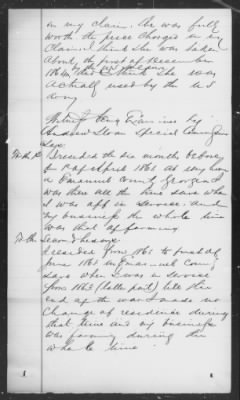 in my claim. She was fully
worth the price charged in my
Claim. I think she was taken
about the first of December
1864 by the US army
I think she was
actually used by the US
Army
Witness being Examined by
Andrew Sloan Special Com
Says
I resided the six months before
of April 1861 at my home
in Emanuel County Georgia I
was there all the time save when
I was off in service and
my business the whole time
was that of farming
To the Second he says
I resided from 1861 to first of
June 1865 in Emanuel County
save when I was in service
from 1863 (latter part) till the
end of the war I made no
change of residence during
that time and my business
was farming during the
whole time